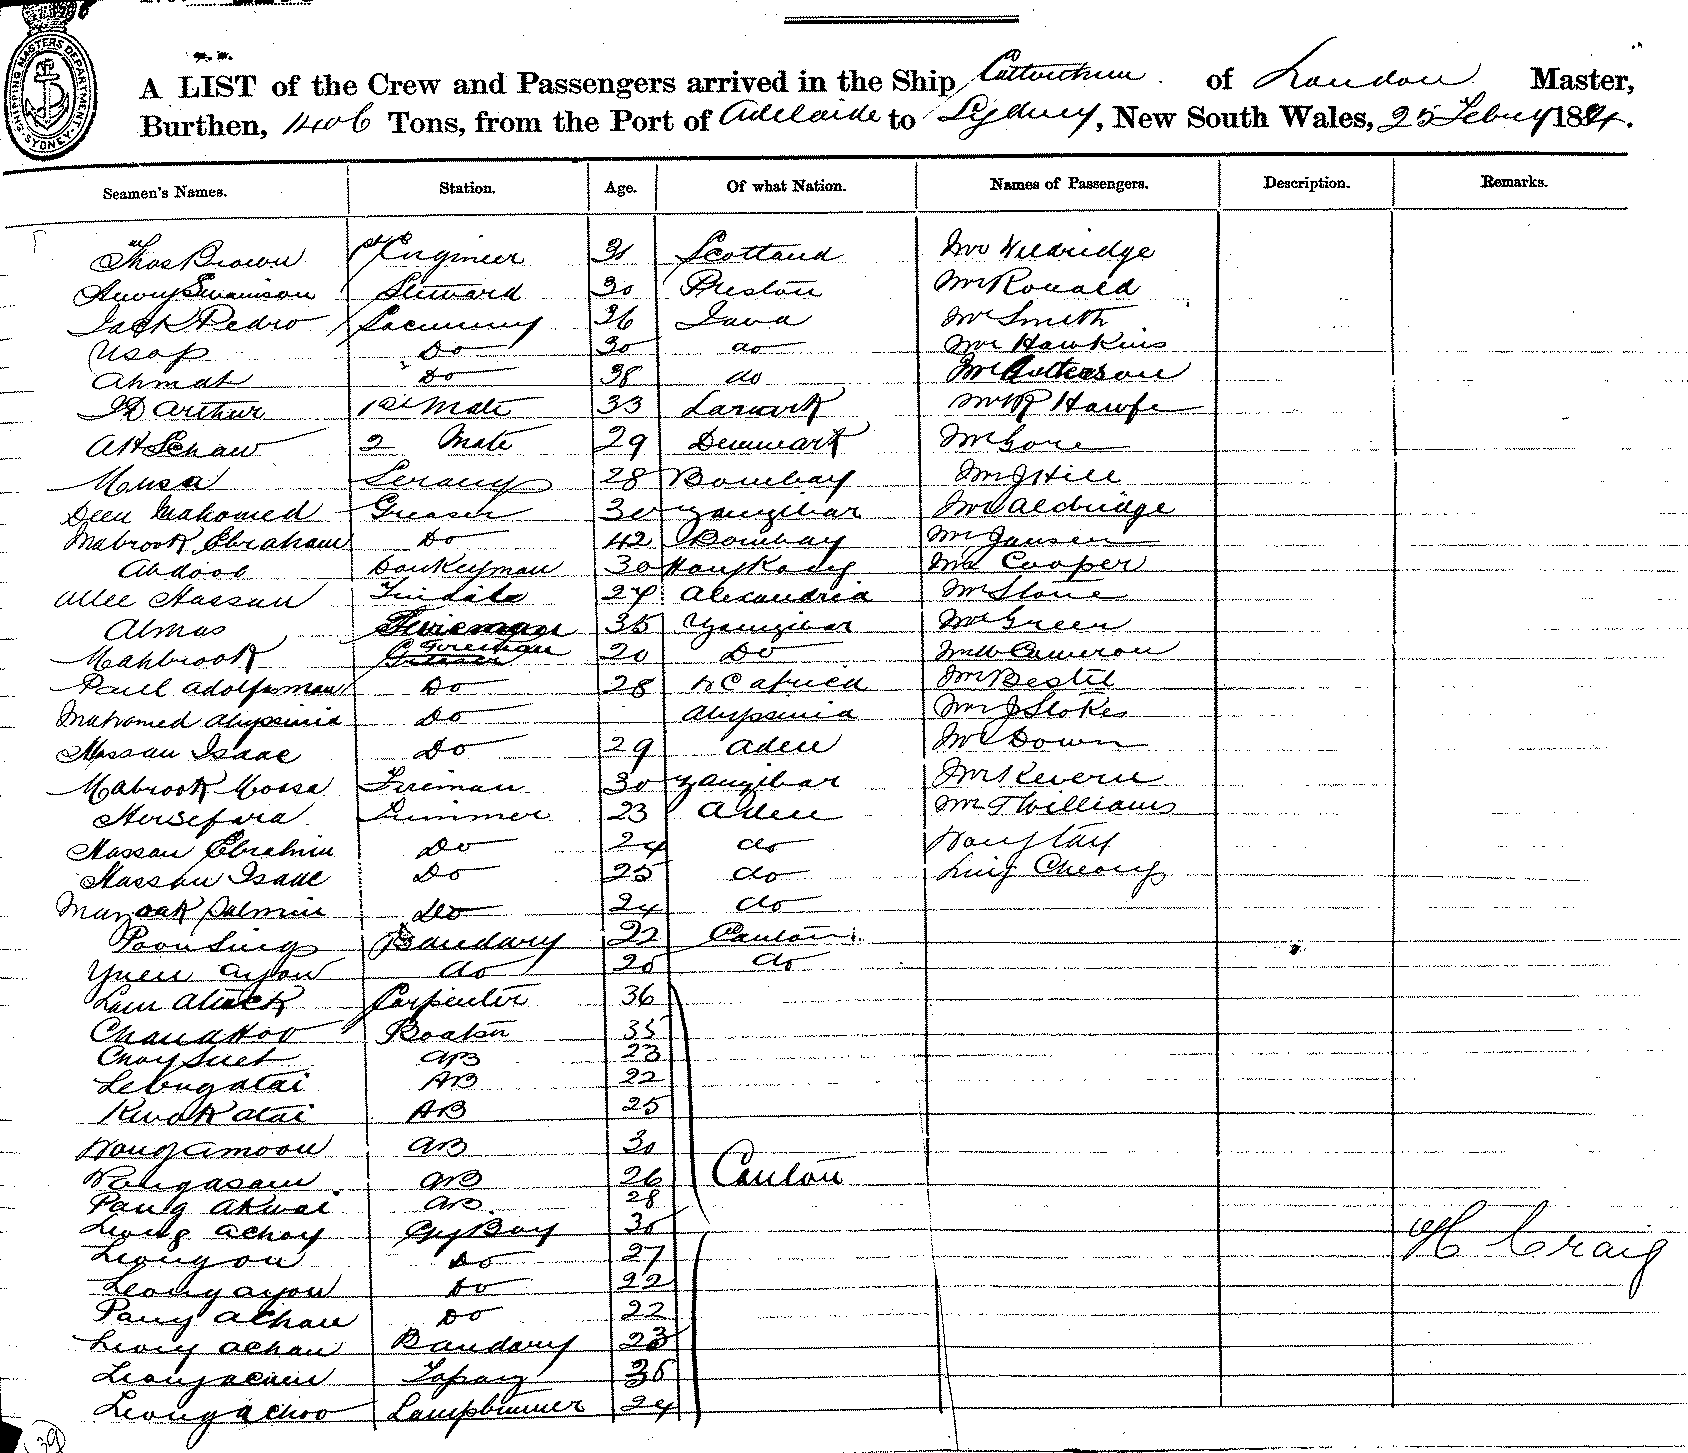 SHIPPING MASTERS DEPARTMENT SYDNEY
A LIST of the Crew and Passengers arrived in the Ship of London Master,
Burthen, 1406 Tons, from the Port of Adelaide to Sydney, New South Wales, 25 Febry 1884.
Seamen's Names. Station. Age. Of what Nation. Names of Passengers. Description. Remarks.
Thos Brown 1st Engineer 31 Scotland Mr Wildridge
Henry Swanison Steward 30 Preston Mr Ronald
Jack Pedro Saccunny 36 Java Mr Smith
Usop Do 30 do Mr Hawkins
Ahmat Do 38 do Mr
J D Arthur 1st Mate 33 Lanark Mr R
A H Schaw 2 Mate 29 Denmark Mr Gore
Musa Serang 28 Bombay Mr J Hill
Deen Mahomed Greaser 30 Zanzibar Mr Aldridge
Mabrook Ebraham Do 42 Bombay Mr Jansen
Abdool Donkeyman 30 Hong Kong Mr Cooper
Allee Hassan Tindale 27 Alexandria Mr Stone
Almas Fireman 35 Zanzibar Mr Green
Mahbrook Fireman 20 Do Mr W Cameron
Paul Do 28 Africa Mr
Mahomed Abyssinia Do Abyssinia Mr J Stokes
Hassan Isaac Do 29 Aden Mr Down
Mabrook Moosa Fireman 30 Zanzibar Mr
Trimmer 23 Aden Mr T Williams
Hassan Ebrahim Do 24 do
Hassan Isaac Do 25 do Ling Cheong
Salmin do 24 do
Poon Sing Bandary 22 Canton
Yuen Ayow do 20 do
Lam Carpenter 36
Chan Ahoo Boatsn 35
Choy Suet AB 23
AB 22
Kwok Atai AB 25
Wong Amoon AB 30
AB 26 Canton
Pang Akwai AB 28
Leong Achoy Boy 30
Leong on Do 27
Leong ayow Do 22 H Craig
Pang Achan Do 22
Leong Achan Bandary 23
Topaz 36
Leong Achoo Lamptrimmer 24